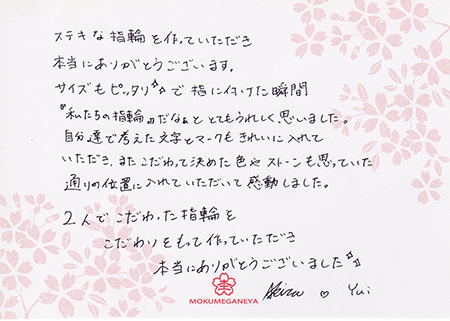 ステキな指輪を作っていただき
本当にありがとうございます。
サイズもピッタリで指に付けた瞬間
『私たちの指輪』だなぁととてもうれしく思いました。
自分達で考えた文字とマークもきれいに入れて
いただき、またこだわって決めた色やストーンも思っていた
通りの位置に入れていただいて感動しました。
2人でこだわった指輪を
こだわりをもって作っていただき
本当にありがとうございました
MOKUMEGANEYA
♡ Yui